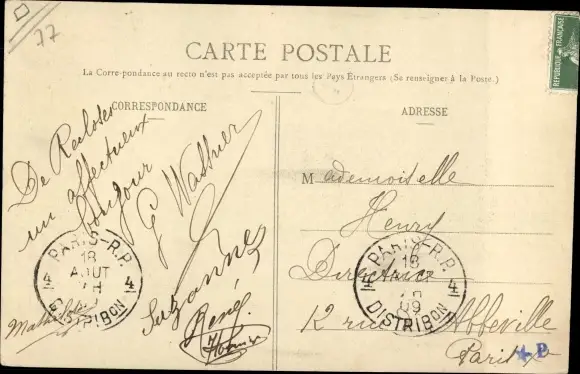 77
CARTE POSTALE
La Correspondance au recto n'est pas acceptée par tous les Pays Étrangers (Se renseigner à la Poste.)
REPUBLIQUE FRANÇAISE
CORRESPONDANCE
De Recloses
un affectueux
bonjour
G Wassner
Suzanne
René
Mathilde
PARIS-R.P.
18
AOUT
4 4
DISTRIBON
ADRESSE
Mademoiselle
Henry
Directrice
12 rue Abbeville
Paris X
PARIS-R.P.
18
4 4
09
DISTRIBON